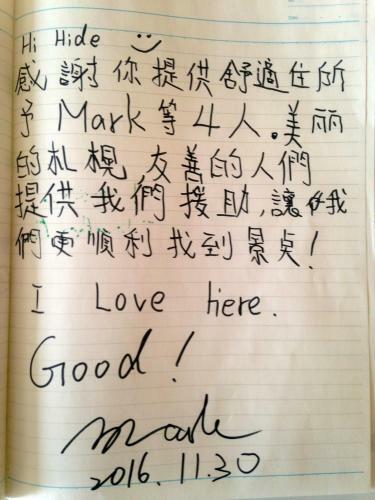 Hi Hide
感謝你提供舒適住所
予Mark等4人.美丽
的札幌,友善的人們
提供我們援助,讓我
們更順利找到景点!
I Love here.
Good!
Mark
2016.11.30